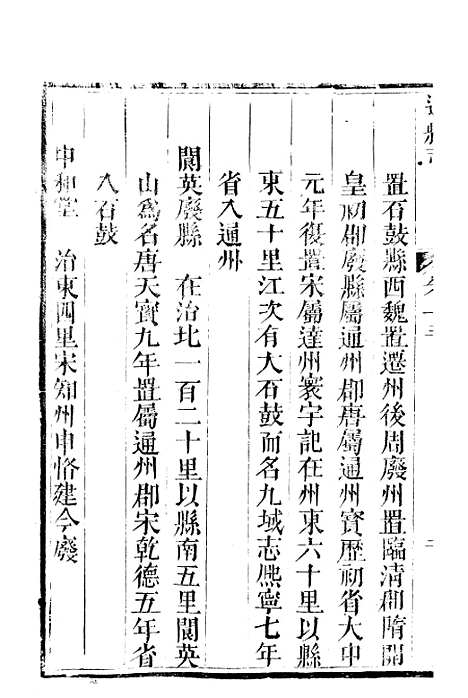 置石鼓縣西魏置遷州後周廢州置臨清郡隋開
皇初郡廢縣屬通州郡唐屬通州寳歷初省大中
元年復置宋屬達州寰宇記在州東六十里以縣
東五十里江次有大石鼓而名九域志熈寧七年
省入通州
閬英廢縣　在治北一百二十里以縣南五里閬英
山爲名唐天寶九年置屬通州郡宋乾德五年省
入石鼓
中和堂　治東四里宋知州申恪建今廢